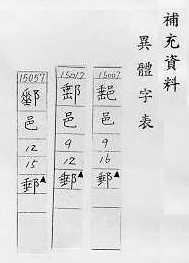 補充資料
異體字表
15007
邑
9
16
郵▲
15017
邑
9
12
郵▲
15057
邑
12
15
郵▲